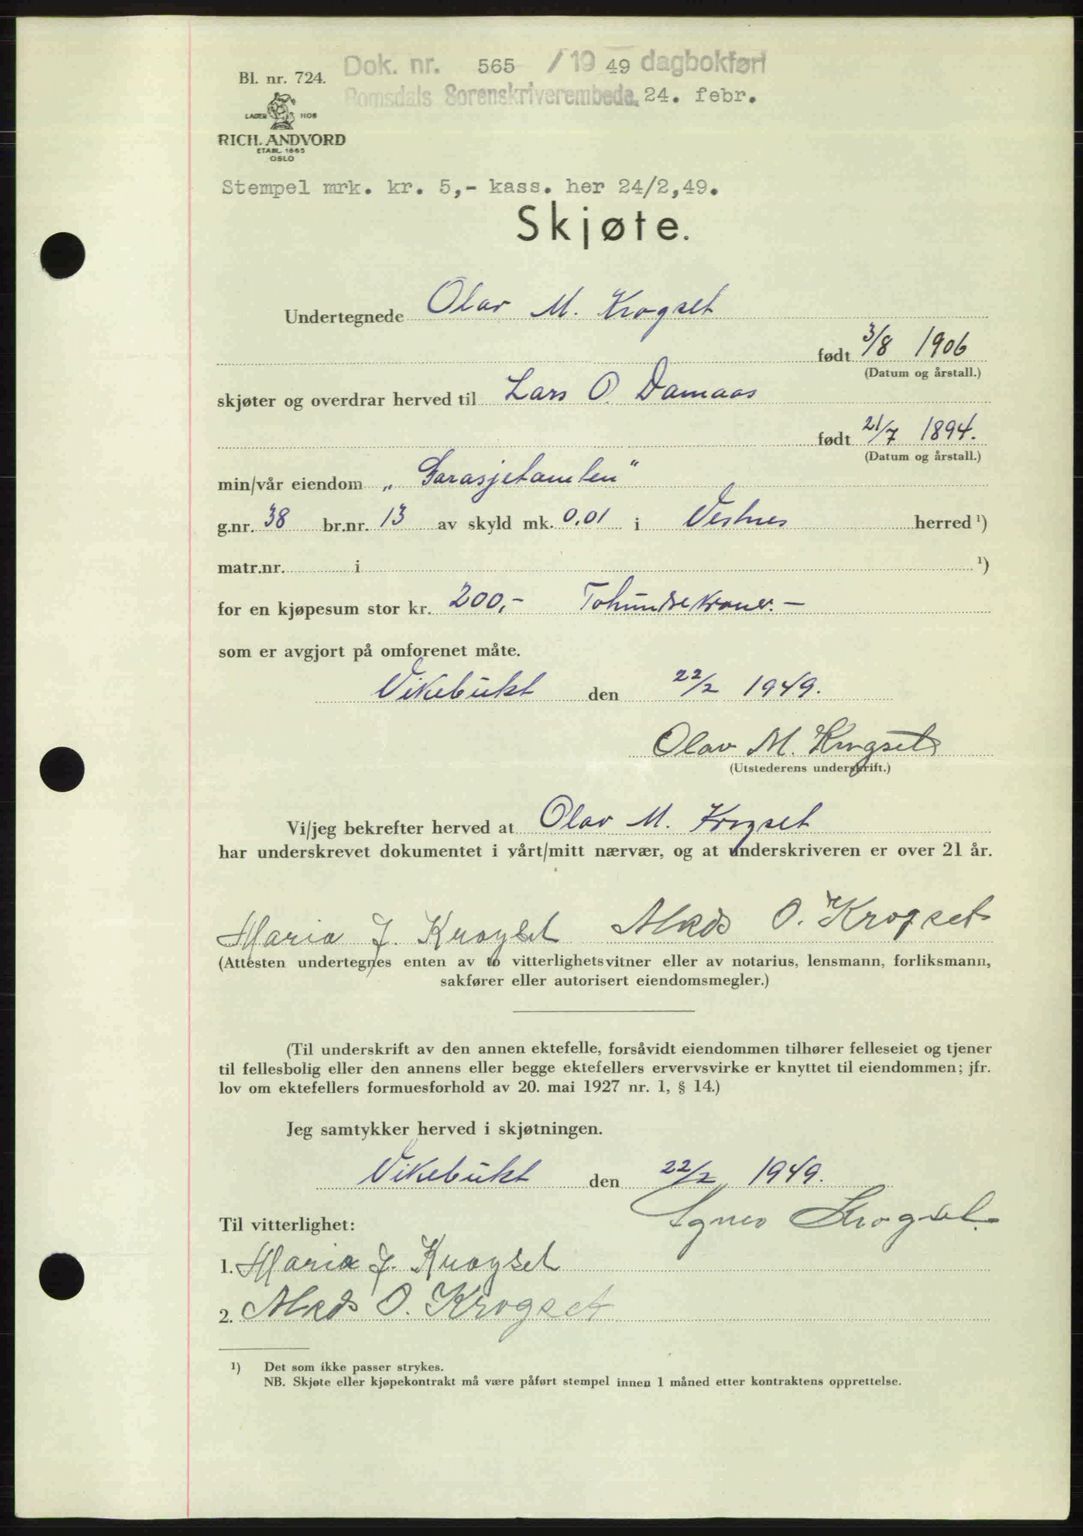 Dok. nr. 565 / 1949 dagbokført
Romsdals Sorenskriverembede, 24. febr.
Bl. nr. 724.
LAGER HOS
RICH. ANDVORD
ETABL. 1865
OSLO
Stempel mrk. kr. 5,- kass. her 24/2,49.
Skjøte.
Undertegnede Olav M. Krogset
født 3/8 1906
(Datum og årstall.)
skjøter og overdrar herved til Lars O. Damaas
født 21/7 1894.
(Datum og årstall.)
min/vår eiendom „Garasjetomten"
g.nr. 38 br.nr. 13 av skyld mk. 0.01 i Vestnes herred ¹)
matr.nr. i ¹)
for en kjøpesum stor kr. 200,- Tohundrekroner.-
som er avgjort på omforenet måte.
Vikebukt den 22/2 1949.
Olav M. Krogset
(Utstederens underskrift.)
Vi/jeg bekrefter herved at Olav M. Krogset
har underskrevet dokumentet i vårt/mitt nærvær, og at underskriveren er over 21 år.
Maria J. Krogset O. Krogset
(Attesten undertegnes enten av to vitterlighetsvitner eller av notarius, lensmann, forliksmann,
sakfører eller autorisert eiendomsmegler.)
(Til underskrift av den annen ektefelle, forsåvidt eiendommen tilhører felleseiet og tjener
til fellesbolig eller den annens eller begge ektefellers ervervsvirke er knyttet til eiendommen; jfr.
lov om ektefellers formuesforhold av 20. mai 1927 nr. 1, § 14.)
Jeg samtykker herved i skjøtningen.
Vikebukt den 22/2 1949.
Agnes Krogset.
Til vitterlighet:
1. Maria J. Krogset
2. O. Krogset
¹) Det som ikke passer strykes.
NB. Skjøte eller kjøpekontrakt må være påført stempel innen 1 måned etter kontraktens opprettelse.